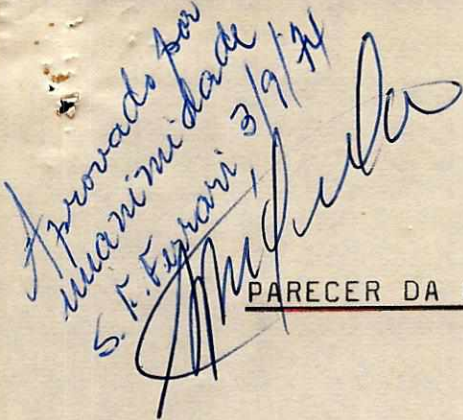 Aprovado por
unanimidade
S. F. Ferrari 3/9/74
PARECER DA